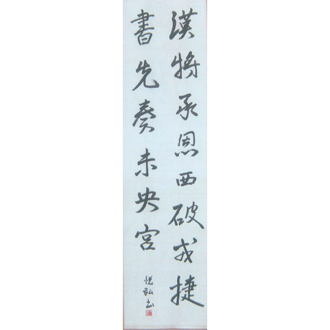 漢將承恩西破戎捷
書先奏未央宮
悅弘書